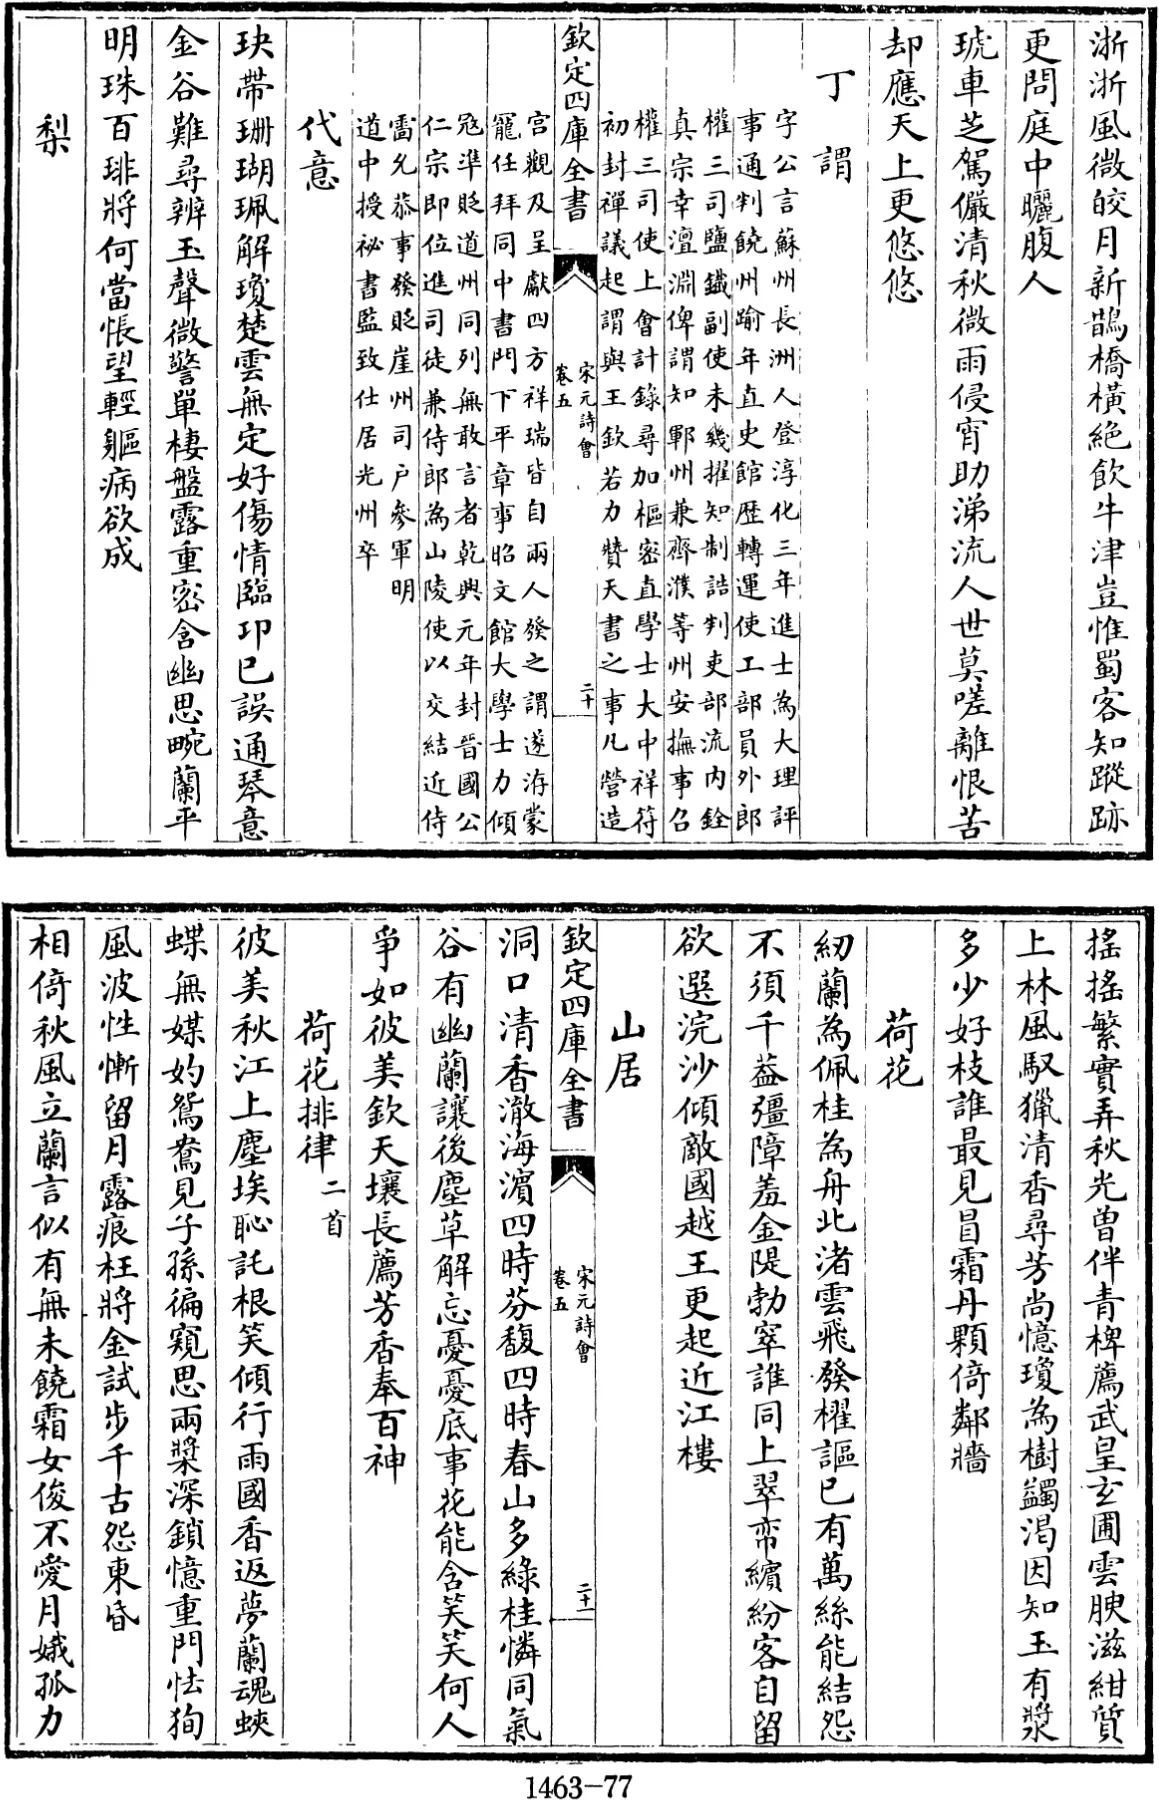 浙浙風微皎月新鵲橋橫絶飲牛津豈惟蜀客知蹤跡
更問庭中曬腹人
琥車芝駕儼清秋微雨侵宵助涕流人世莫嗟離恨苦
却應天上更悠悠
丁謂
字公言蘇州長洲人登淳化三年進士為大理評
事通判饒州踰年直史館歴轉運使工部員外郎
權三司鹽鐵副使未幾擢知制誥判吏部流内銓
真宗幸澶淵俾謂知鄆州兼齊濮等州安撫事召
權三司使上會計錄尋加樞密直學士大中祥符
初封禪議起謂與王欽若力贊天書之事凡營造
欽定四庫全書
宋元詩會
卷五
二十
宫觀及呈獻四方祥瑞皆自兩人發之謂遂洊蒙
寵任拜同中書門下平章事昭文館大學士力傾
冦準貶道州同列無敢言者乾興元年封晉國公
仁宗即位進司徒兼侍郎為山陵使以交結近侍
雷允恭事發貶崖州司户參軍明
道中授祕書監致仕居光州卒
代意
玦帶珊瑚珮解瓊楚雲無定好傷情臨邛已誤通琴意
金谷難尋辨玉聲微警單棲盤露重密含幽思畹蘭平
明珠百琲將何當悵望輕軀病欲成
梨
搖搖繁實弄秋光曽伴青椑薦武皇玄圃雲腴滋紺質
上林風馭獵清香尋芳尚憶瓊為樹蠲渴因知玉有漿
多少好枝誰最見冒霜丹顆倚鄰牆
荷花
紉蘭為佩桂為舟北渚雲飛發櫂謳已有萬絲能結怨
不須千葢彊障羞金隄勃窣誰同上翠帟繽紛客自留
欲選浣沙傾敵國越王更起近江樓
山居
欽定四庫全書
宋元詩會
卷五
二十一
洞口清香澈海濵四時芬馥四時春山多綠桂憐同氣
谷有幽蘭讓後塵草解忘憂憂底事花能含笑笑何人
爭如彼美欽天壤長薦芳香奉百神
荷花排律二首
彼美秋江上塵埃恥託根笑傾行雨國香返夢蘭魂蛺
蝶無媒妁鴛鴦見子孫徧窺思兩槳深鎖憶重門怯狥
風波性慚留月露痕枉將金試步千古怨東昏
相倚秋風立蘭言似有無未饒霜女俊不愛月娥孤力
1463-77